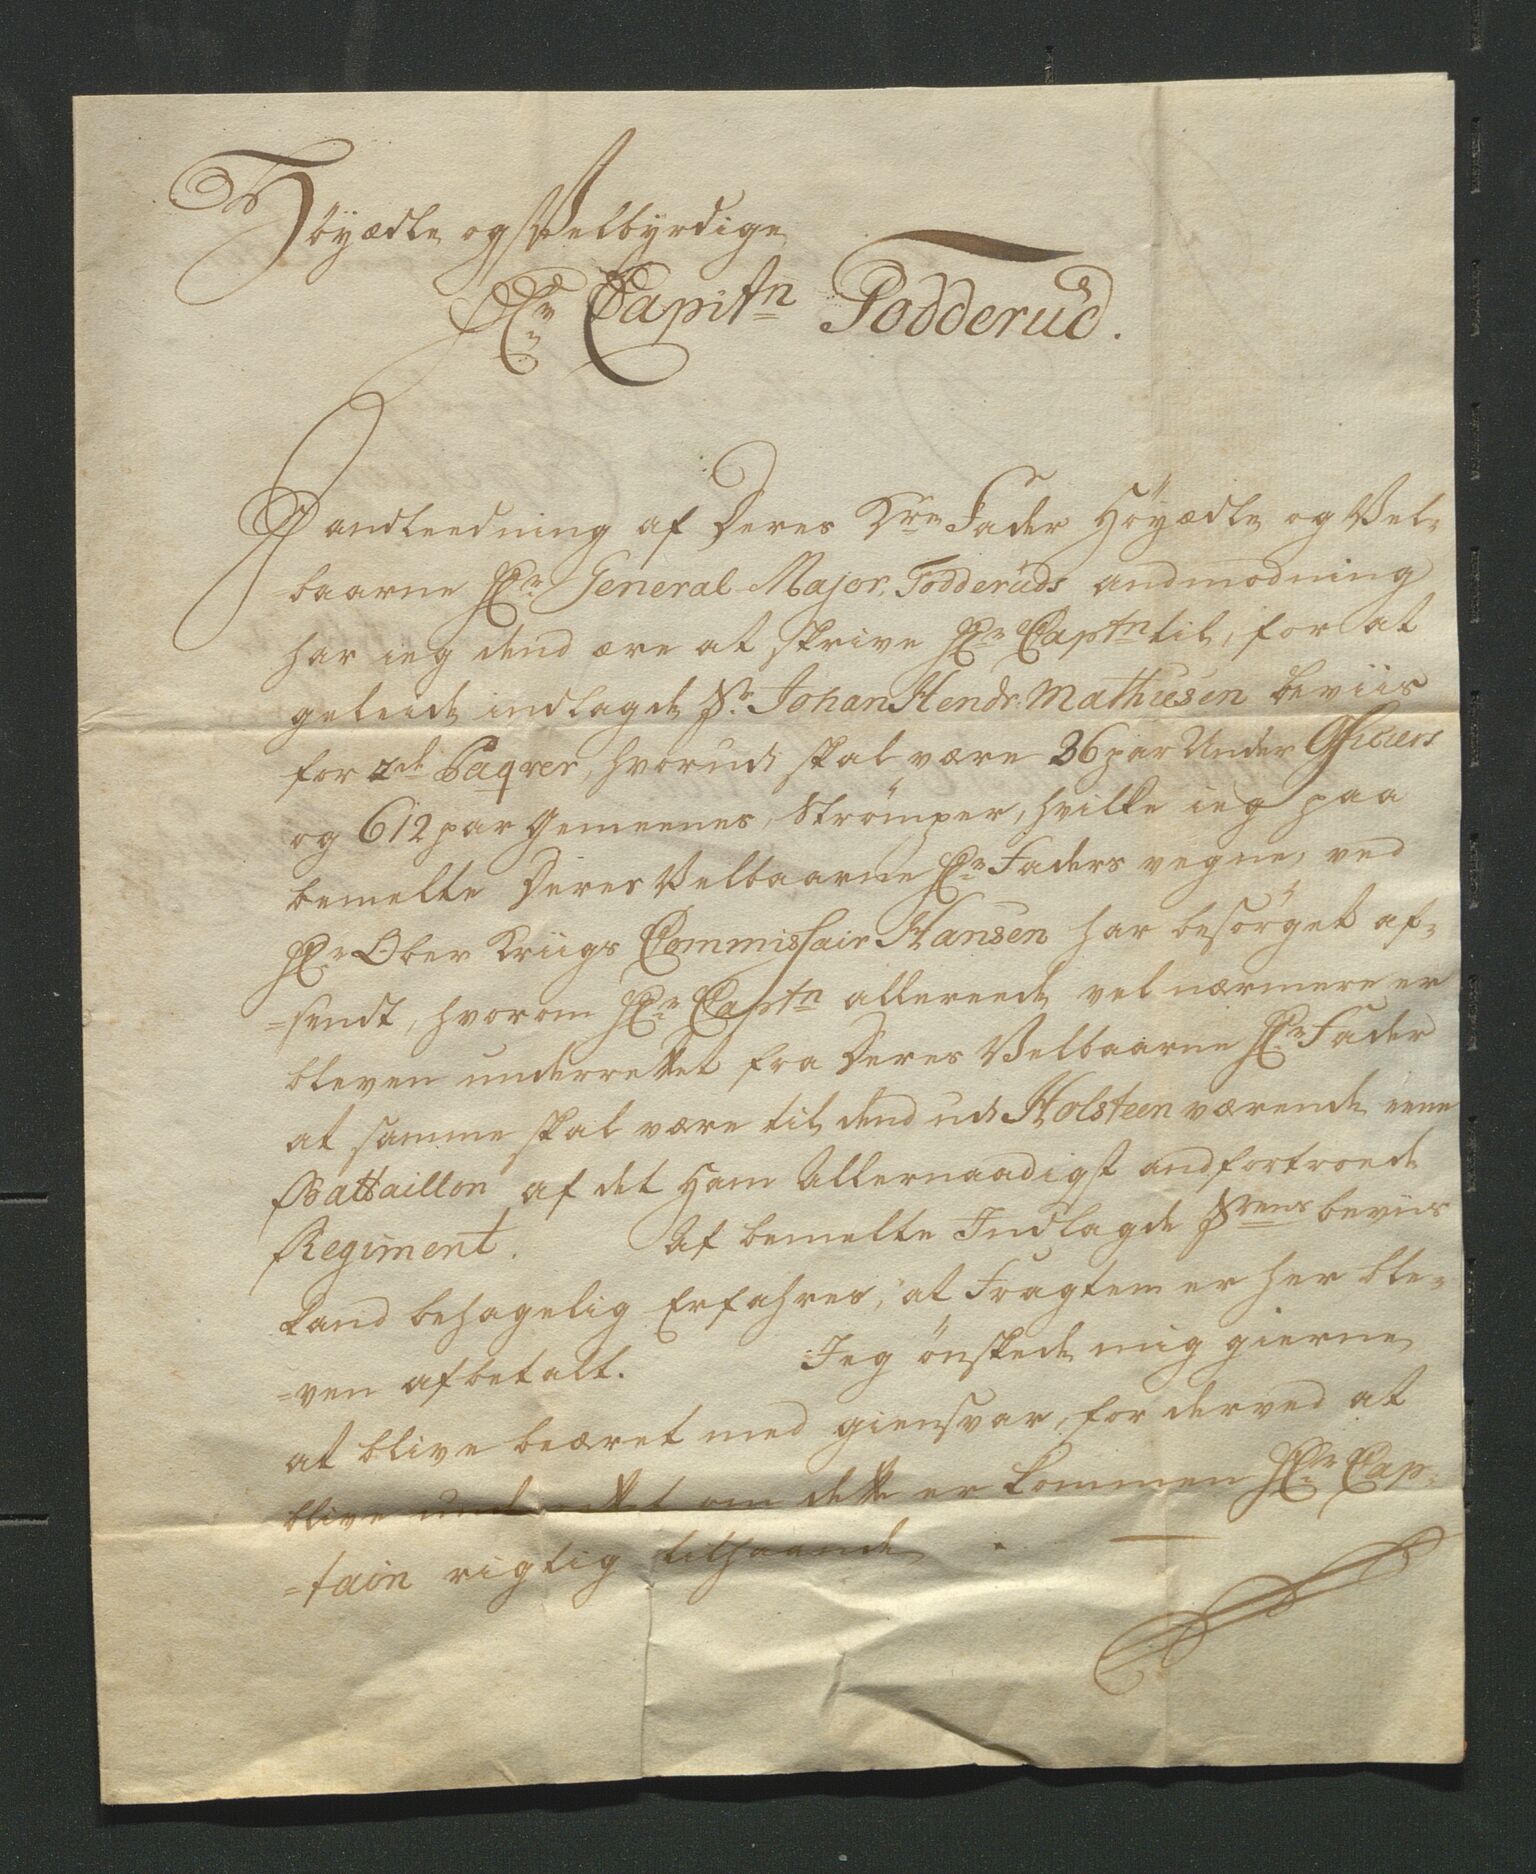 Höyædle og Velbyrdige
Hr Capitn Todderud.
I andleedning af Deres Kre Fader Höyædle og Vel-
baarne Hr General Major Todderuds andmodning
har ieg dend ære at skrive Hr Captn til, for at
geleide indlagde Sr. Johan Hendr. Mathiesen beviis
for 2de Paqver, hvorudi skal være 36 par Under Officiers
og 612 par Gemeenes Strømper, hvilke ieg paa
bemelte Deres Velbaarne Hr Faders vegne, ved
Hr Ober Kriigs Commissair Hansen har besörget af-
=sendt, hvorom Hr Captn allereede vel nærmere er
bleven underrettet fra Deres Velbaarne Hr Fader
at samme skal være til dend udi Holsteen værende eene
Battaillon af det ham Allernaadigst andfortroede
Regiment. Af bemelte Indlagde Srens beviis
kand behagelig Erfahres, at Fragten er her ble-
=ven afbetalt. Jeg önskede mig gierne
at blive beæret med giensvar, for derved at
blive underrettet om dette er kommen Hr Cap-
=tain rigtig tilhaande.